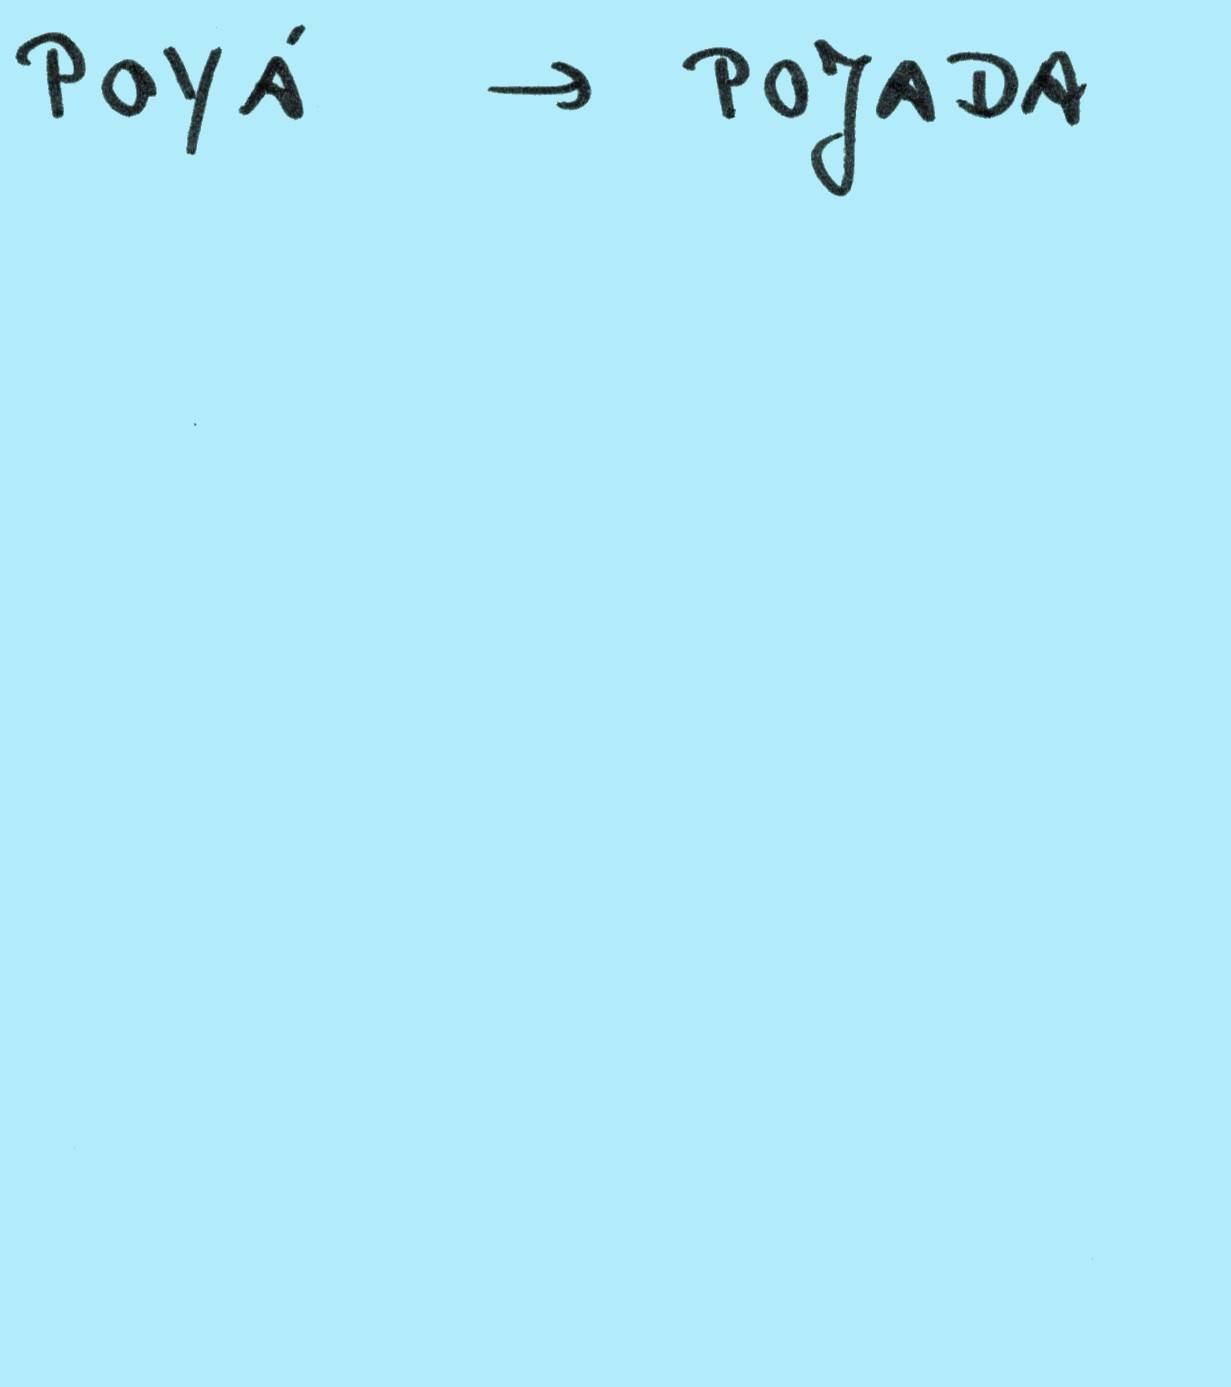 POYÁ → POJADA